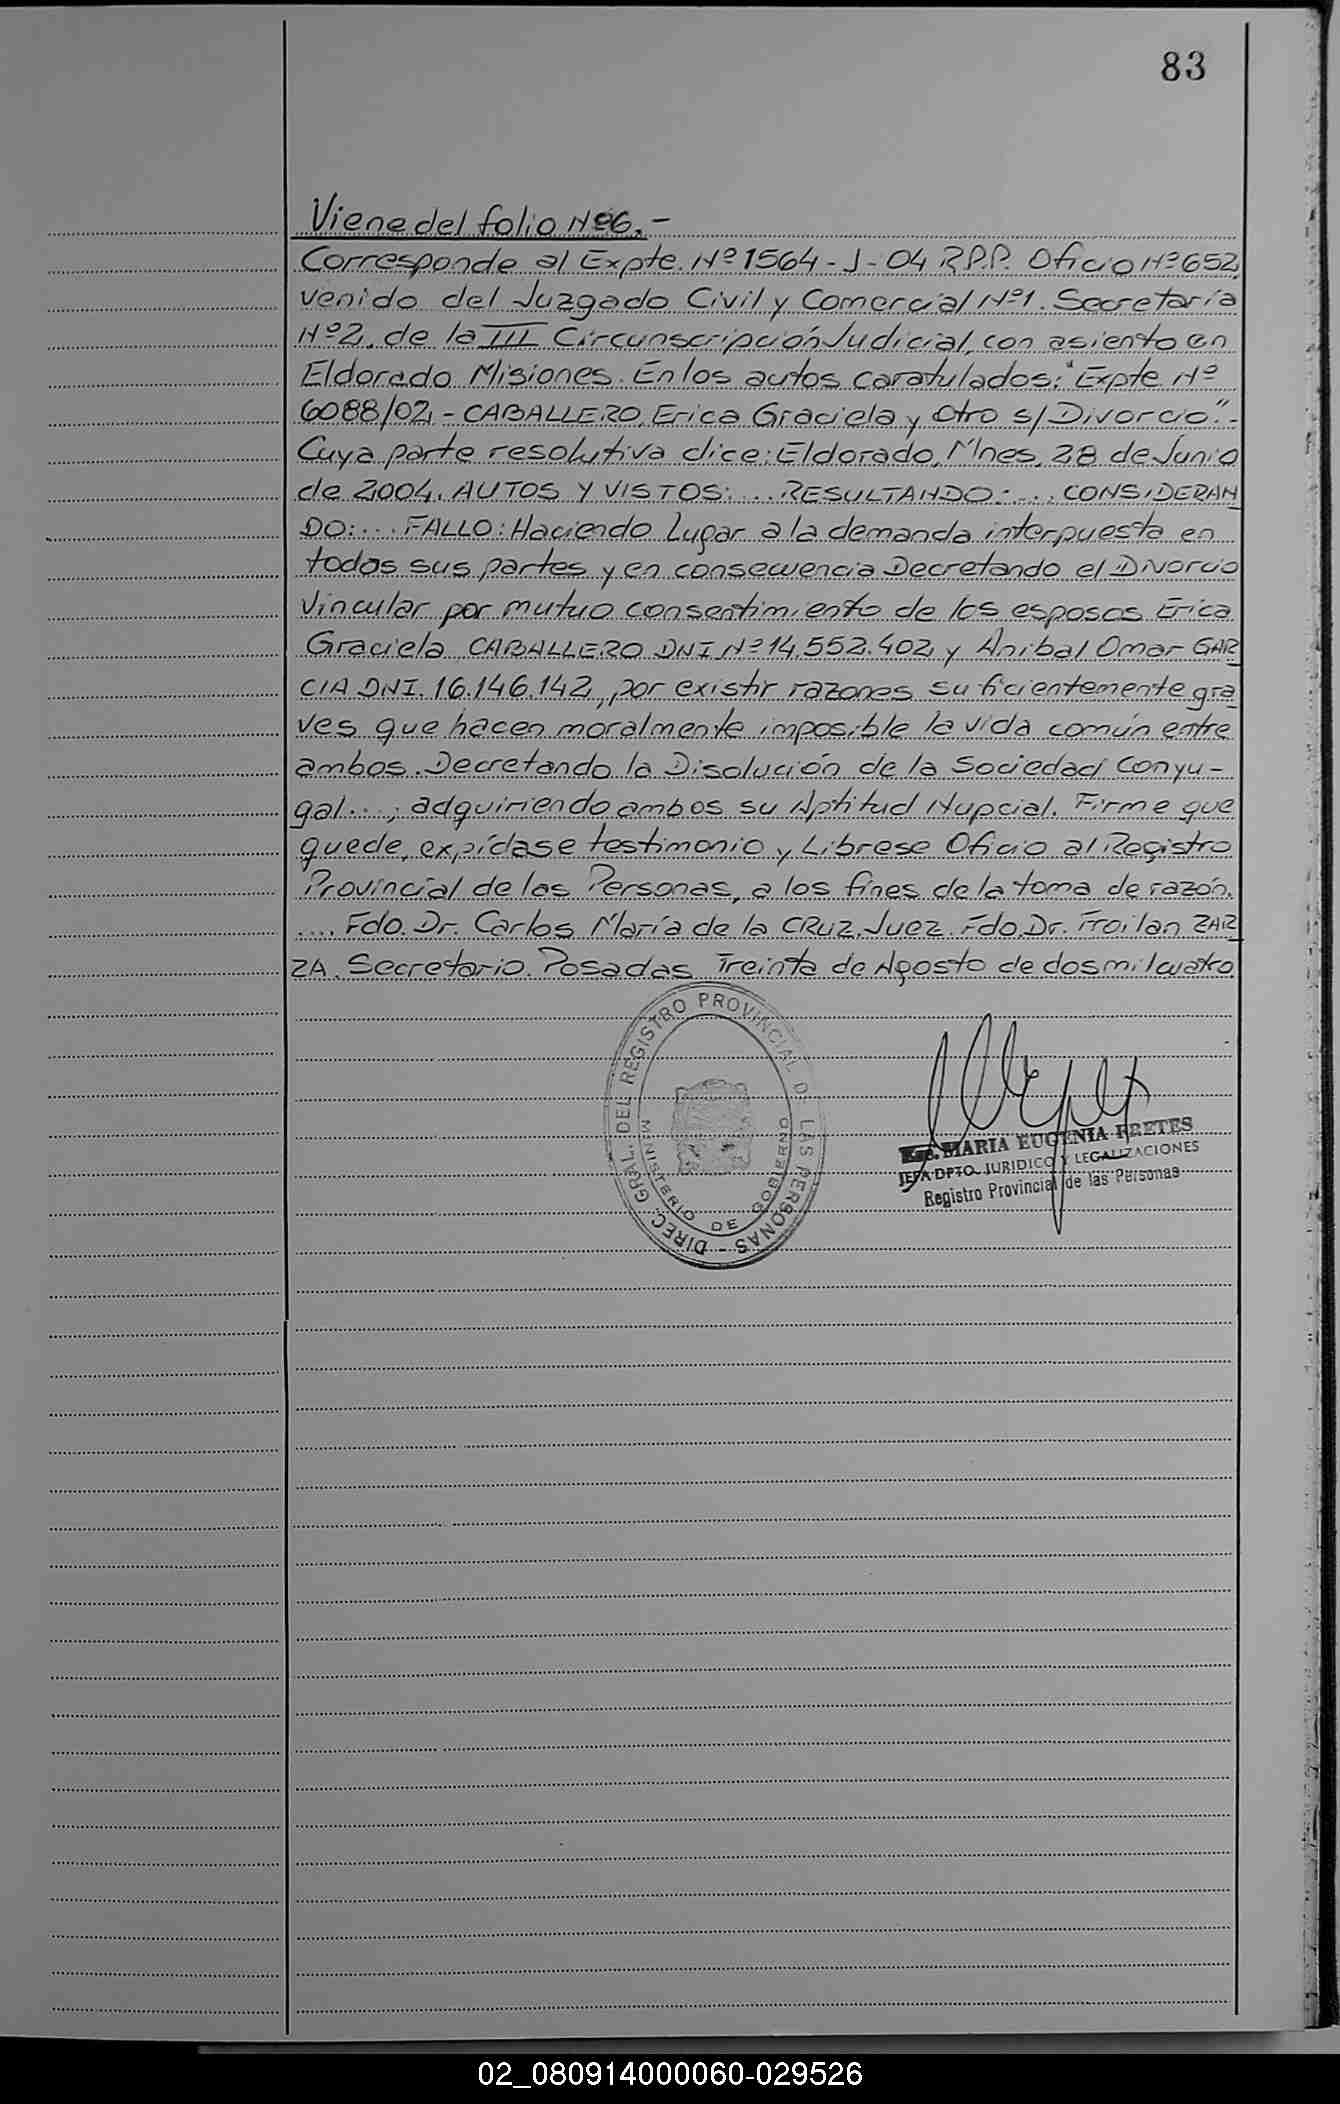 83
Viene del folio Nº 6.-
Corresponde al Expte. Nº 1564-J-04 R.P.P. Oficio Nº 652,
venido del Juzgado Civil y Comercial Nº1. Secretaría
Nº2, de la III Circunscripción Judicial, con asiento en
Eldorado Misiones. En los autos caratulados: "Expte Nº
6088/02,- CABALLERO, Erica Graciela y Otro s/Divorcio".-
Cuya parte resolutiva dice: Eldorado, Mnes, 28 de Junio
de 2004. AUTOS Y VISTOS:... RESULTANDO:... CONSIDERAN
DO:... FALLO: Haciendo Lugar a la demanda interpuesta en
todas sus partes y en consecuencia Decretando el Divorcio
Vincular por mutuo consentimiento de los esposos Erica
Graciela CABALLERO DNI Nº 14.552.402, y Anibal Omar GAR
CIA DNI. 16.146.142, por existir razones suficientemente gra
ves que hacen moralmente imposible la vida común entre
ambos. Decretando la Disolución de la Sociedad Conyu-
gal...; adquiriendo ambos su Aptitud Nupcial. Firme que
quede, expídase testimonio y Librese Oficio al Registro
Provincial de las Personas, a los fines de la toma de razón.
.... Fdo. Dr. Carlos María de la CRUZ, Juez. Fdo. Dr. Froilan ZAR
ZA. Secretario. Posadas Treinta de Agosto de dos mil cuatro
DIREC. GRAL. DEL REGISTRO PROVINCIAL DE LAS PERSONAS -
MINISTERIO DE GOBIERNO
MARIA EUGENIA FRETES
JEFA DPTO. JURIDICO Y LEGALIZACIONES
Registro Provincial de las Personas
02_080914000060-029526